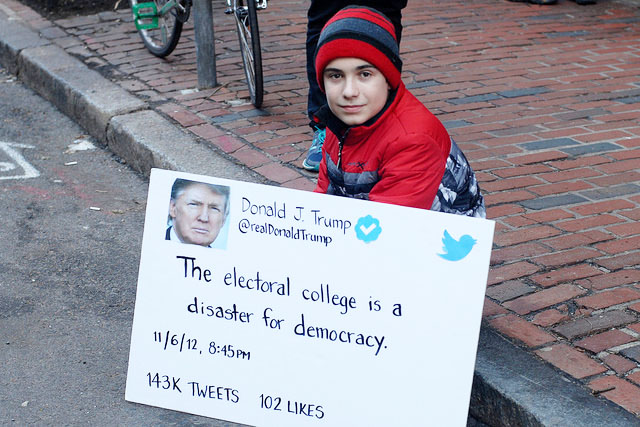 Donald J. Trump
@realDonaldTrump
The electoral college is a
disaster for democracy.
11/6/12, 8:45PM
143K TWEETS 102 LIKES